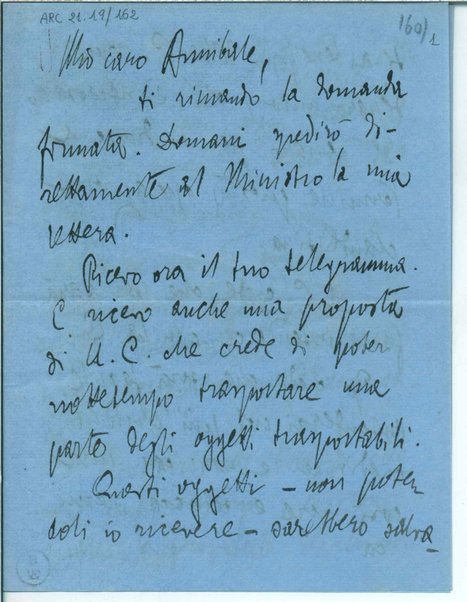 ARC 21.19/162
160/1
Mio caro Annibale,
ti rimando la domanda
firmata. Domani spedirò di-
rettamente al Ministro la mia
lettera.
Ricevo ora il tuo telegramma.
E ricevo anche una proposta
di U. C. che crede di poter
nottetempo trasportare una
parte degli oggetti trasportabili.
Questi oggetti – non poten
doli io ricevere – sarebbero salva-